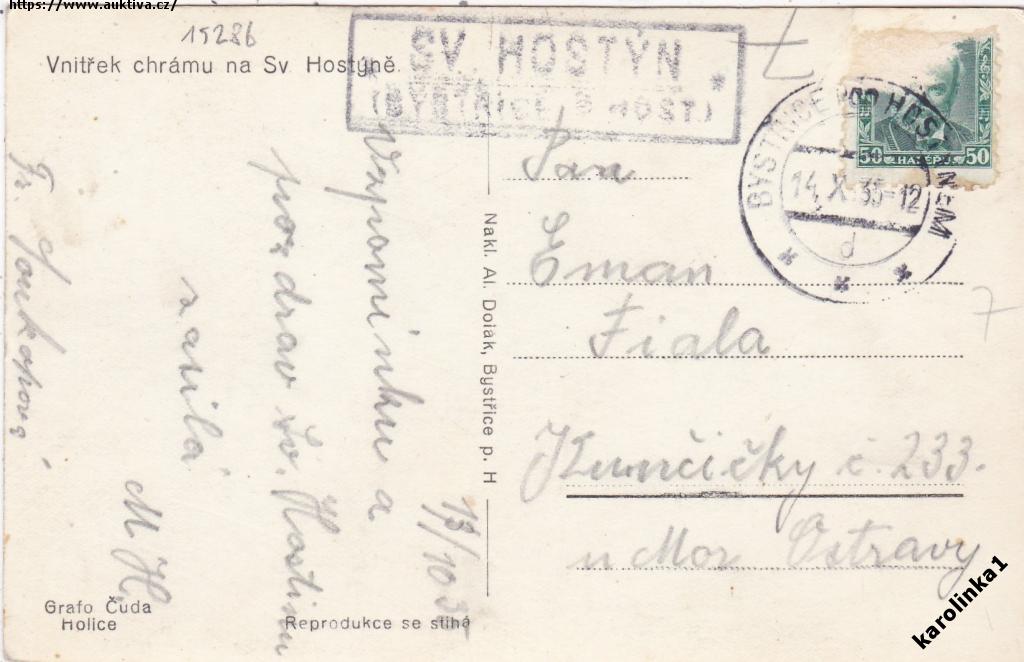 https://www.auktiva.cz/
15286
Vnitřek chrámu na Sv Hostýně
SV. HOSTÝN
(BYSTŘICE P. HOST.)
BYSTŘICE POD HOSTÝNEM
14. X. 35-12
d
50 HALÉŘŮ 50
7
7
Pan
Eman
Fiala
Kunčičky č. 233.
u Mor Ostravy
Nakl. Al. Doják, Bystřice p. H
13/10 35
Vzpomínku a
pozdrav Sv. Hostinu
zasílá
M. H.
Fr.
Grafo Čuda
Holice
Reprodukce se stíhá
karolinka1